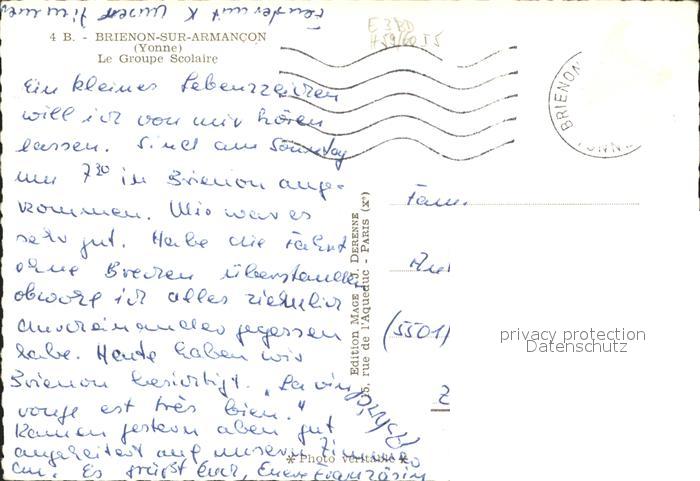 4 B. - BRIENON-SUR-ARMANÇON
(Yonne)
Le Groupe Scolaire
Ein kleines Lebenszeichen
will ich von mir hören
lassen. Sind am Sonntag
um 7³⁰ in Brienon ange-
kommen. Mir war es
sehr gut. Habe die Fahrt
ohne Brechen überstanden
obwohl ich alles ziemlich
durcheinander gegessen
habe. Heute haben wir
Brienon besichtigt. "Le vin
rouge est très bien."
Kamen gestern aben gut
angeheitert auf unserem Zimmer
an. Es grüßt Euch, Eure Französin
Edition MAGE - J. DERENNE
rue de l'Aqueduc - PARIS (Xᵉ)
Photo véritable
BRIENON
YONNE
Fam.
(5501)
privacy protection
Datenschutz